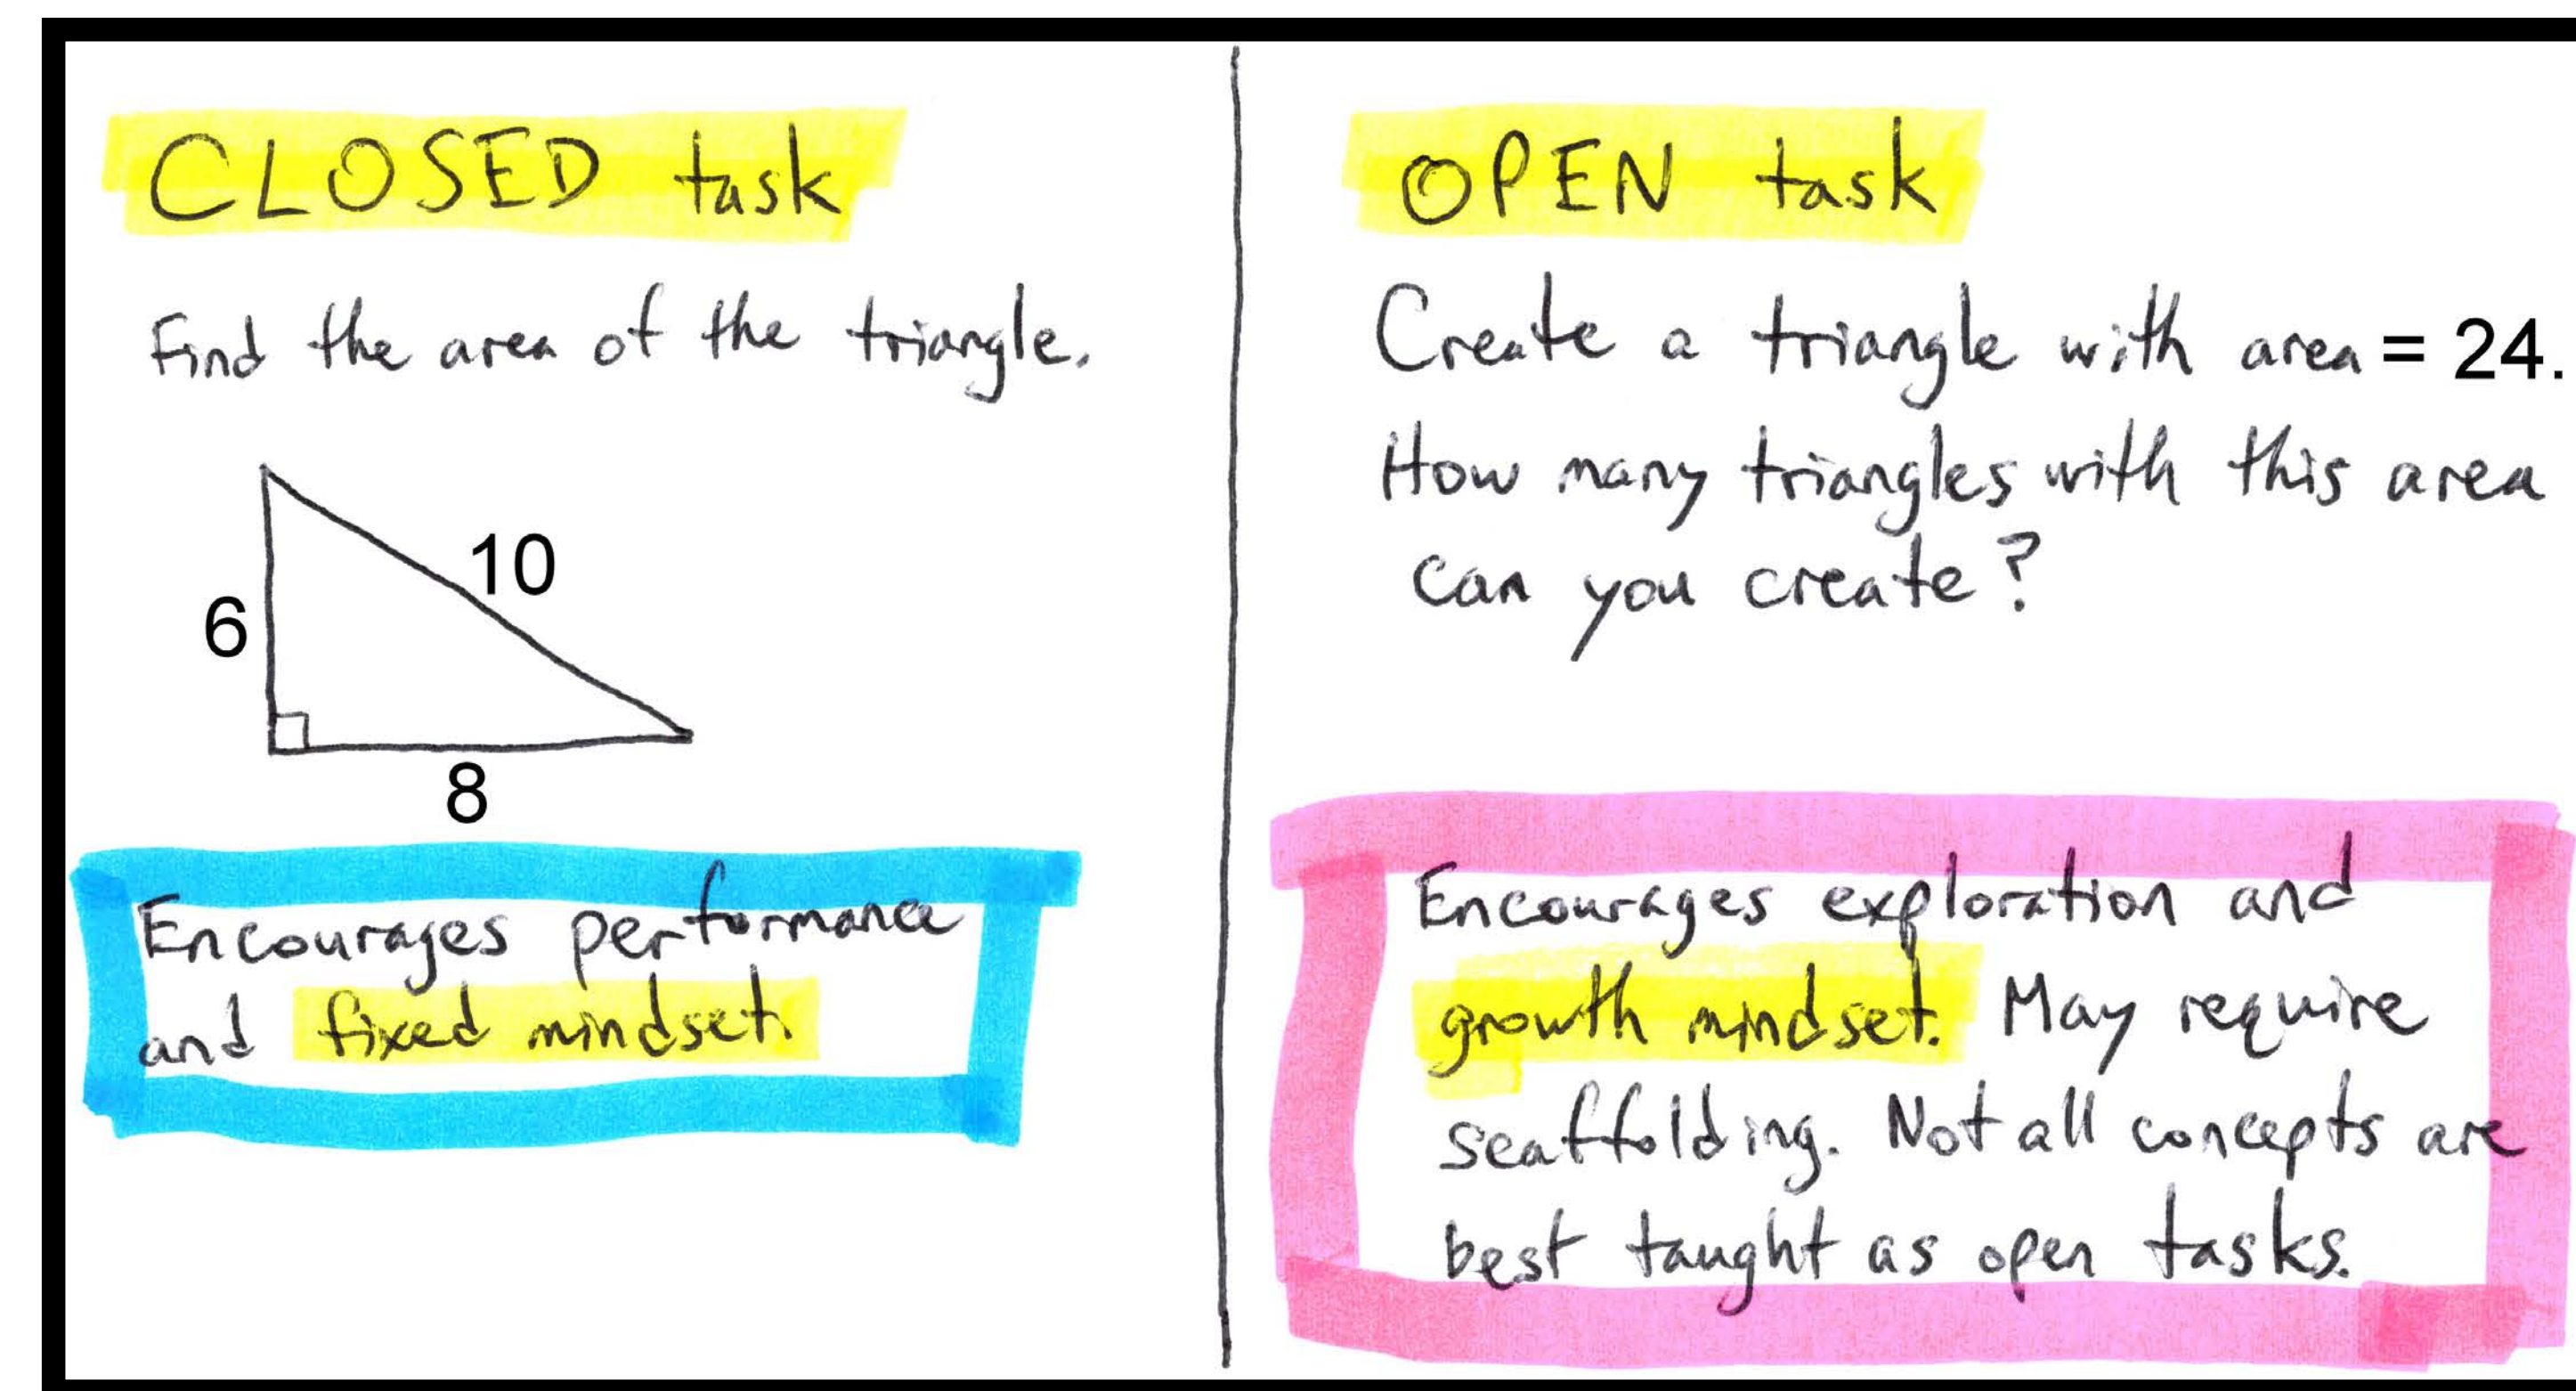 CLOSED task
Find the area of the triangle.
10
6
8
Encourages performance
and fixed mindset.
OPEN task
Create a triangle with area = 24.
How many triangles with this area
can you create?
Encourages exploration and
growth mindset. May require
scaffolding. Not all concepts are
best taught as open tasks.